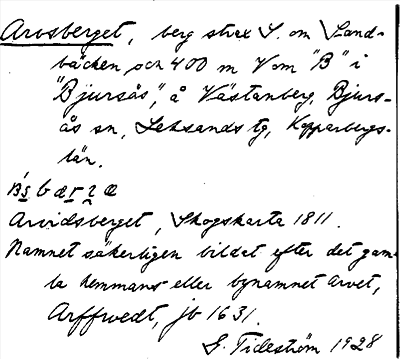 Arvsberget, berg strax S. om Sand-
bäcken och 400 m V om "B" i
"Bjursås", å Västanberg, Bjurs-
ås sn, Leksands tg, Kopparbergs
län.
Arvidsberget, Skogskarta 1811.
Namnet säkerligen bildat efter det gam-
la hemmans eller bynamnet Arvet,
Arffwedt, jb 1631.
G. Tideström 1928